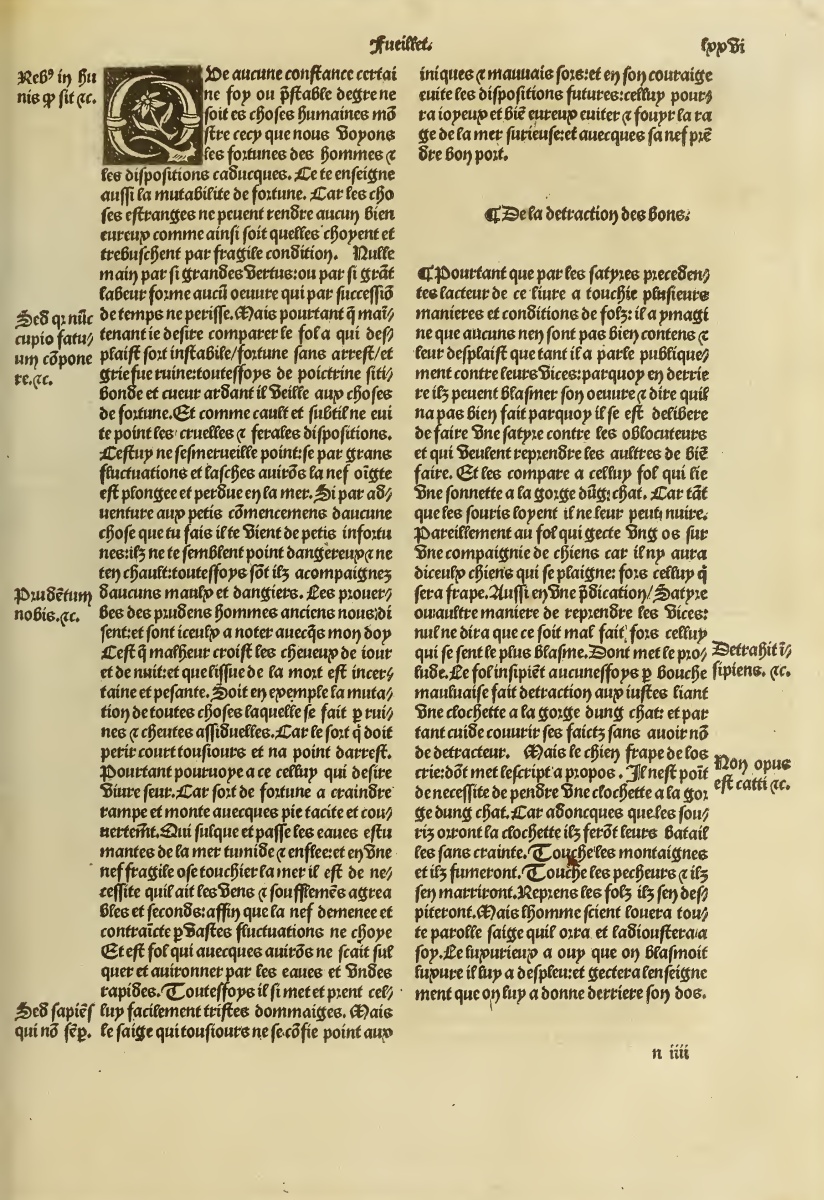 Fueillet.
lxxvi
Rebꝰ in hu
nis ꝙ sit ⁊c.
QUe aucune constance certai
ne foy ou p̄stable degre ne
soit es choses humaines mō
stre cecy que nous voyons
les fortunes des hommes ⁊
les dispositions caducques. Ce te enseigne
aussi la mutabilite de fortune. Car les cho
ses estranges ne peuent rendre aucun bien
eureux comme ainsi soit quelles choyent et
trebuschent par fragile condition. Nulle
main par si grandes vertus:ou par si grāt
labeur forme aucū oeuure qui par successiō
de temps ne perisse. Mais pourtant q̄ mai/
tenant ie desire comparer le fol a qui des/
plaist sort instabile/fortune sans arrest/et
griefue ruine:toutesfoys de poictrine siti/
bonde et cueur ardant il veille aux choses
de fortune. Et comme cault et subtil ne eui
te point les cruelles ⁊ ferales dispositions.
Cestuy ne sesmerueille point:se par grans
fluctuations et lasches auirōs la nef oigte
est plongee et perdue en la mer. Si par ad/
uenture aux petis cōmencemens daucune
chose que tu fais il te vient de petis infortu
nes:ilz ne te semblent point dangereux ⁊ ne
ten chault:toutesfoys sōt ilz acompaignez
daucuns maulx et dangiers. Les prouer/
bes des prudens hommes anciens nous di
sent:et sont iceulx a noter auecq̄s mon doy
Cest q̄ malheur croist les cheueux de iour
et de nuit:et que lissue de la mort est incer/
taine et pesante. Soit en exemple la muta/
tion de toutes choses laquelle se fait p rui/
nes ⁊ cheutes assiduelles. Car le sort q̄ doit
perir court tousiours et na point darrest.
Pourtant pouruoye a ce celluy qui desire
viure seur. Car sort de fortune a craindre
rampe et monte auecques pie tacite et cou/
uertemēt. Qui sulque et passe les eaues estu
mantes de la mer tumide ⁊ enflee:et en vne
nef fragile ose touchier la mer il est de ne/
cessite quil ait les vens ⁊ soufflemēs agrea
bles et seconds:affin que la nef demenee et
contraicte p vastes fluctuations ne chope
Et est fol qui auecques auirōs ne scait sul
quer et auironner par les eaues et vndes
rapides. Toutesfoys il si met et prent cel/
luy facilement tristes dommaiges. Mais
le saige qui tousiours ne se cōfie point aux
Sed q: nūc
cupio fatu/
um cōpone
re.⁊c.
Prudētum
nobis.⁊c.
Sed sapiēs
qui nō sēp.
iniques ⁊ mauuais sors:et en son couraige
euite les dispositions futures:celluy pour/
ra ioyeux et biē eureux euiter ⁊ fouyr la ra
ge de la mer furieuse:et auecques sa nef prē
dre bon port.
¶ De la detraction des bons.
¶ Pourtant que par les satyres preceden/
tes lacteur de ce liure a touchie plusieurs
manieres et conditions de folz: il a ymagi
ne que aucuns nen sont pas bien contens ⁊
leur desplaist que tant il a parle publique/
ment contre leurs vices:parquoy en derrie
re ilz peuent blasmer son oeuure ⁊ dire quil
na pas bien fait parquoy il se est delibere
de faire vne satyre contre les oblocuteurs
et qui veulent reprendre les aultres de biē
faire. Et les compare a celluy fol qui lie
vne sonnette a la gorge dūg chat. Car tāt
que les souris loyent il ne leur peut nuire.
Pareillement au fol qui gecte vng os sur
vne compaignie de chiens car il ny aura
diceulx chiens qui se plaigne: fors celluy q̄
sera frape. Aussi en vne p̄dication/Satyre
ou aultre maniere de reprendre les vices:
nul ne dira que ce soit mal fait, fors celluy
qui se sent le plus blasme. Dont met le pro/
lude. Le fol insipiēt aucunesfoys p bouche
maulsuaise fait detraction aux iustes liant
vne clochette a la gorge dung chat: et par
tant cuide couurir ses faictz sans auoir nō
de detracteur. Mais le chien frape de los
crie:dōt met lescript a propos. Il nest poīt
de necessite de pendre vne clochette a la gor
ge dung chat. Car adoncques que les sou/
riz orront la clochette ilz ferōt leurs batail
les sans crainte. Touche les montaignes
et ilz fumeront. Touche les pecheurs ⁊ ilz
sen marriront. Reprens les folz ilz sen des/
piteront. Mais lhomme scient louera tou/
te parolle saige quil orra et ladioustera a
soy. Le luxurieux a ouy que on blasmoit
luxure il luy a despleu:et gectera lenseigne
ment que on luy a donne derriere son dos.
Detrahit ī/
sipiens. ⁊c.
Non opus
est catti ⁊c.
n iiii